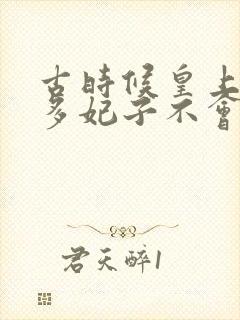 古時候皇上
多妃子不會
君天醉1